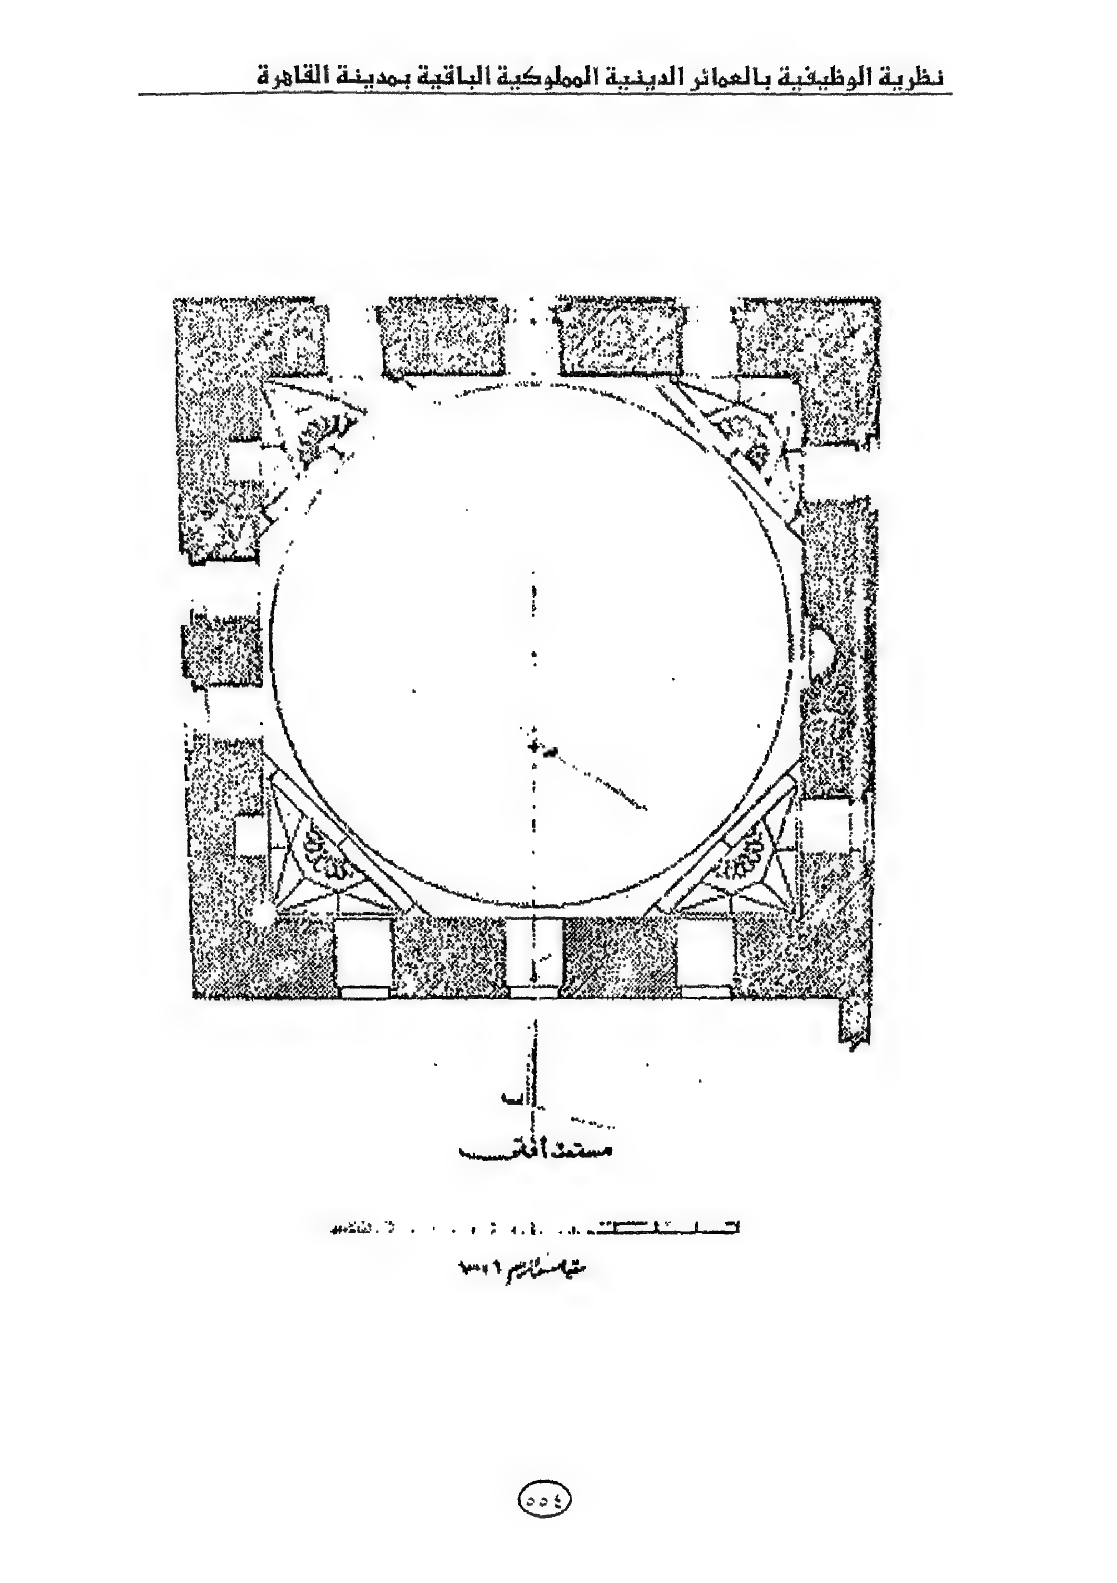 نظرية الوظيفية بالعمائر الدينية المملوكية الباقية بمدينة القاهرة
مسقط أفقى
مقياس الرسم
٥٥٤